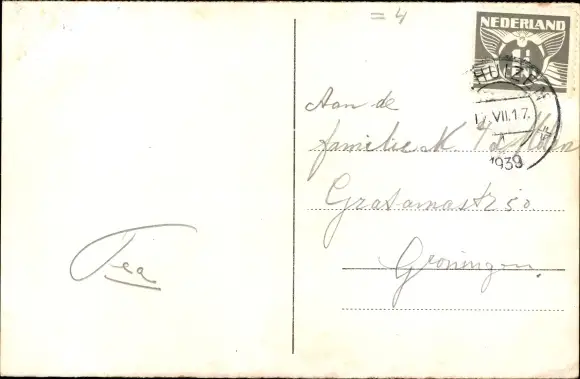 = 4
NEDERLAND
1½
HUIZEN
17. VII. 17.
1939
Aan de
familie K. v/d
50
Groningen.
Tea